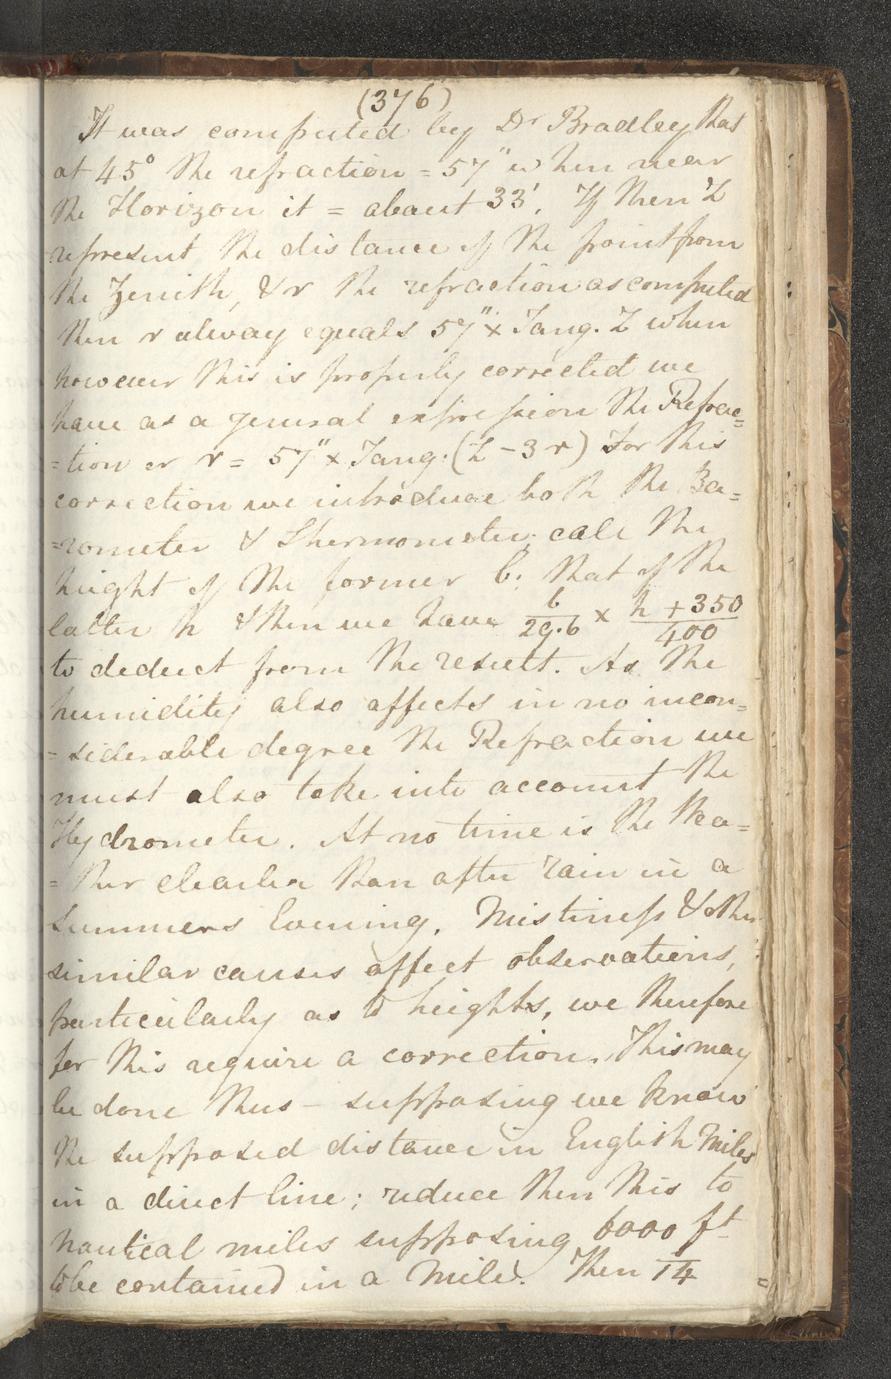 (376)
It was computed by Dr Bradley that
at 45° the refraction = 57" when near
the Horizon it = about 33'. If then Z
represent the distance of the point from
the Zenith, & r the refraction as computed
then r alway equals 57" × Tang. Z when
however this is properly corrected we
have as a general expression the Refrac=
=tion or r = 57" × Tang. (Z - 3 r) For this
correction we introduce both the Ba=
=rometer & Thermometer; call the
height of the former b; that of the
latter h & then we have b/29.6 × h + 350/400
to deduct from the result. As the
humidity also affects in no incon=
=siderable degree the Refraction we
must also take into account the
Hydrometer. At no time is the Wea=
=ther clearer than after rain in a
summers Evening. Mistiness & other
similar causes affect observations,
particularly as to heights, we therefore
for this require a correction. This may
be done thus - supposing we know
the supposed distance in English Miles
in a direct line; reduce then this to
nautical miles supposing 6000 ft
to be contained in a Mile. Then 1/14 =